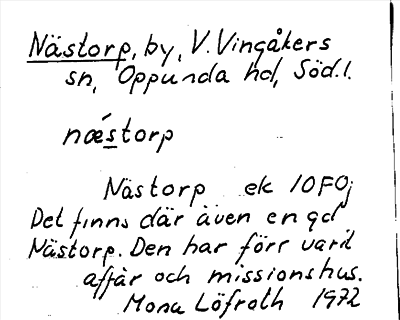 Nästorp, by, V. Vingåkers
sn, Oppunda hd, Söd.l.
næ´storp
Nästorp ek 10F0j
Det finns där även en gd
Nästorp. Den har förr varit
affär och missionshus.
Mona Löfroth 1972